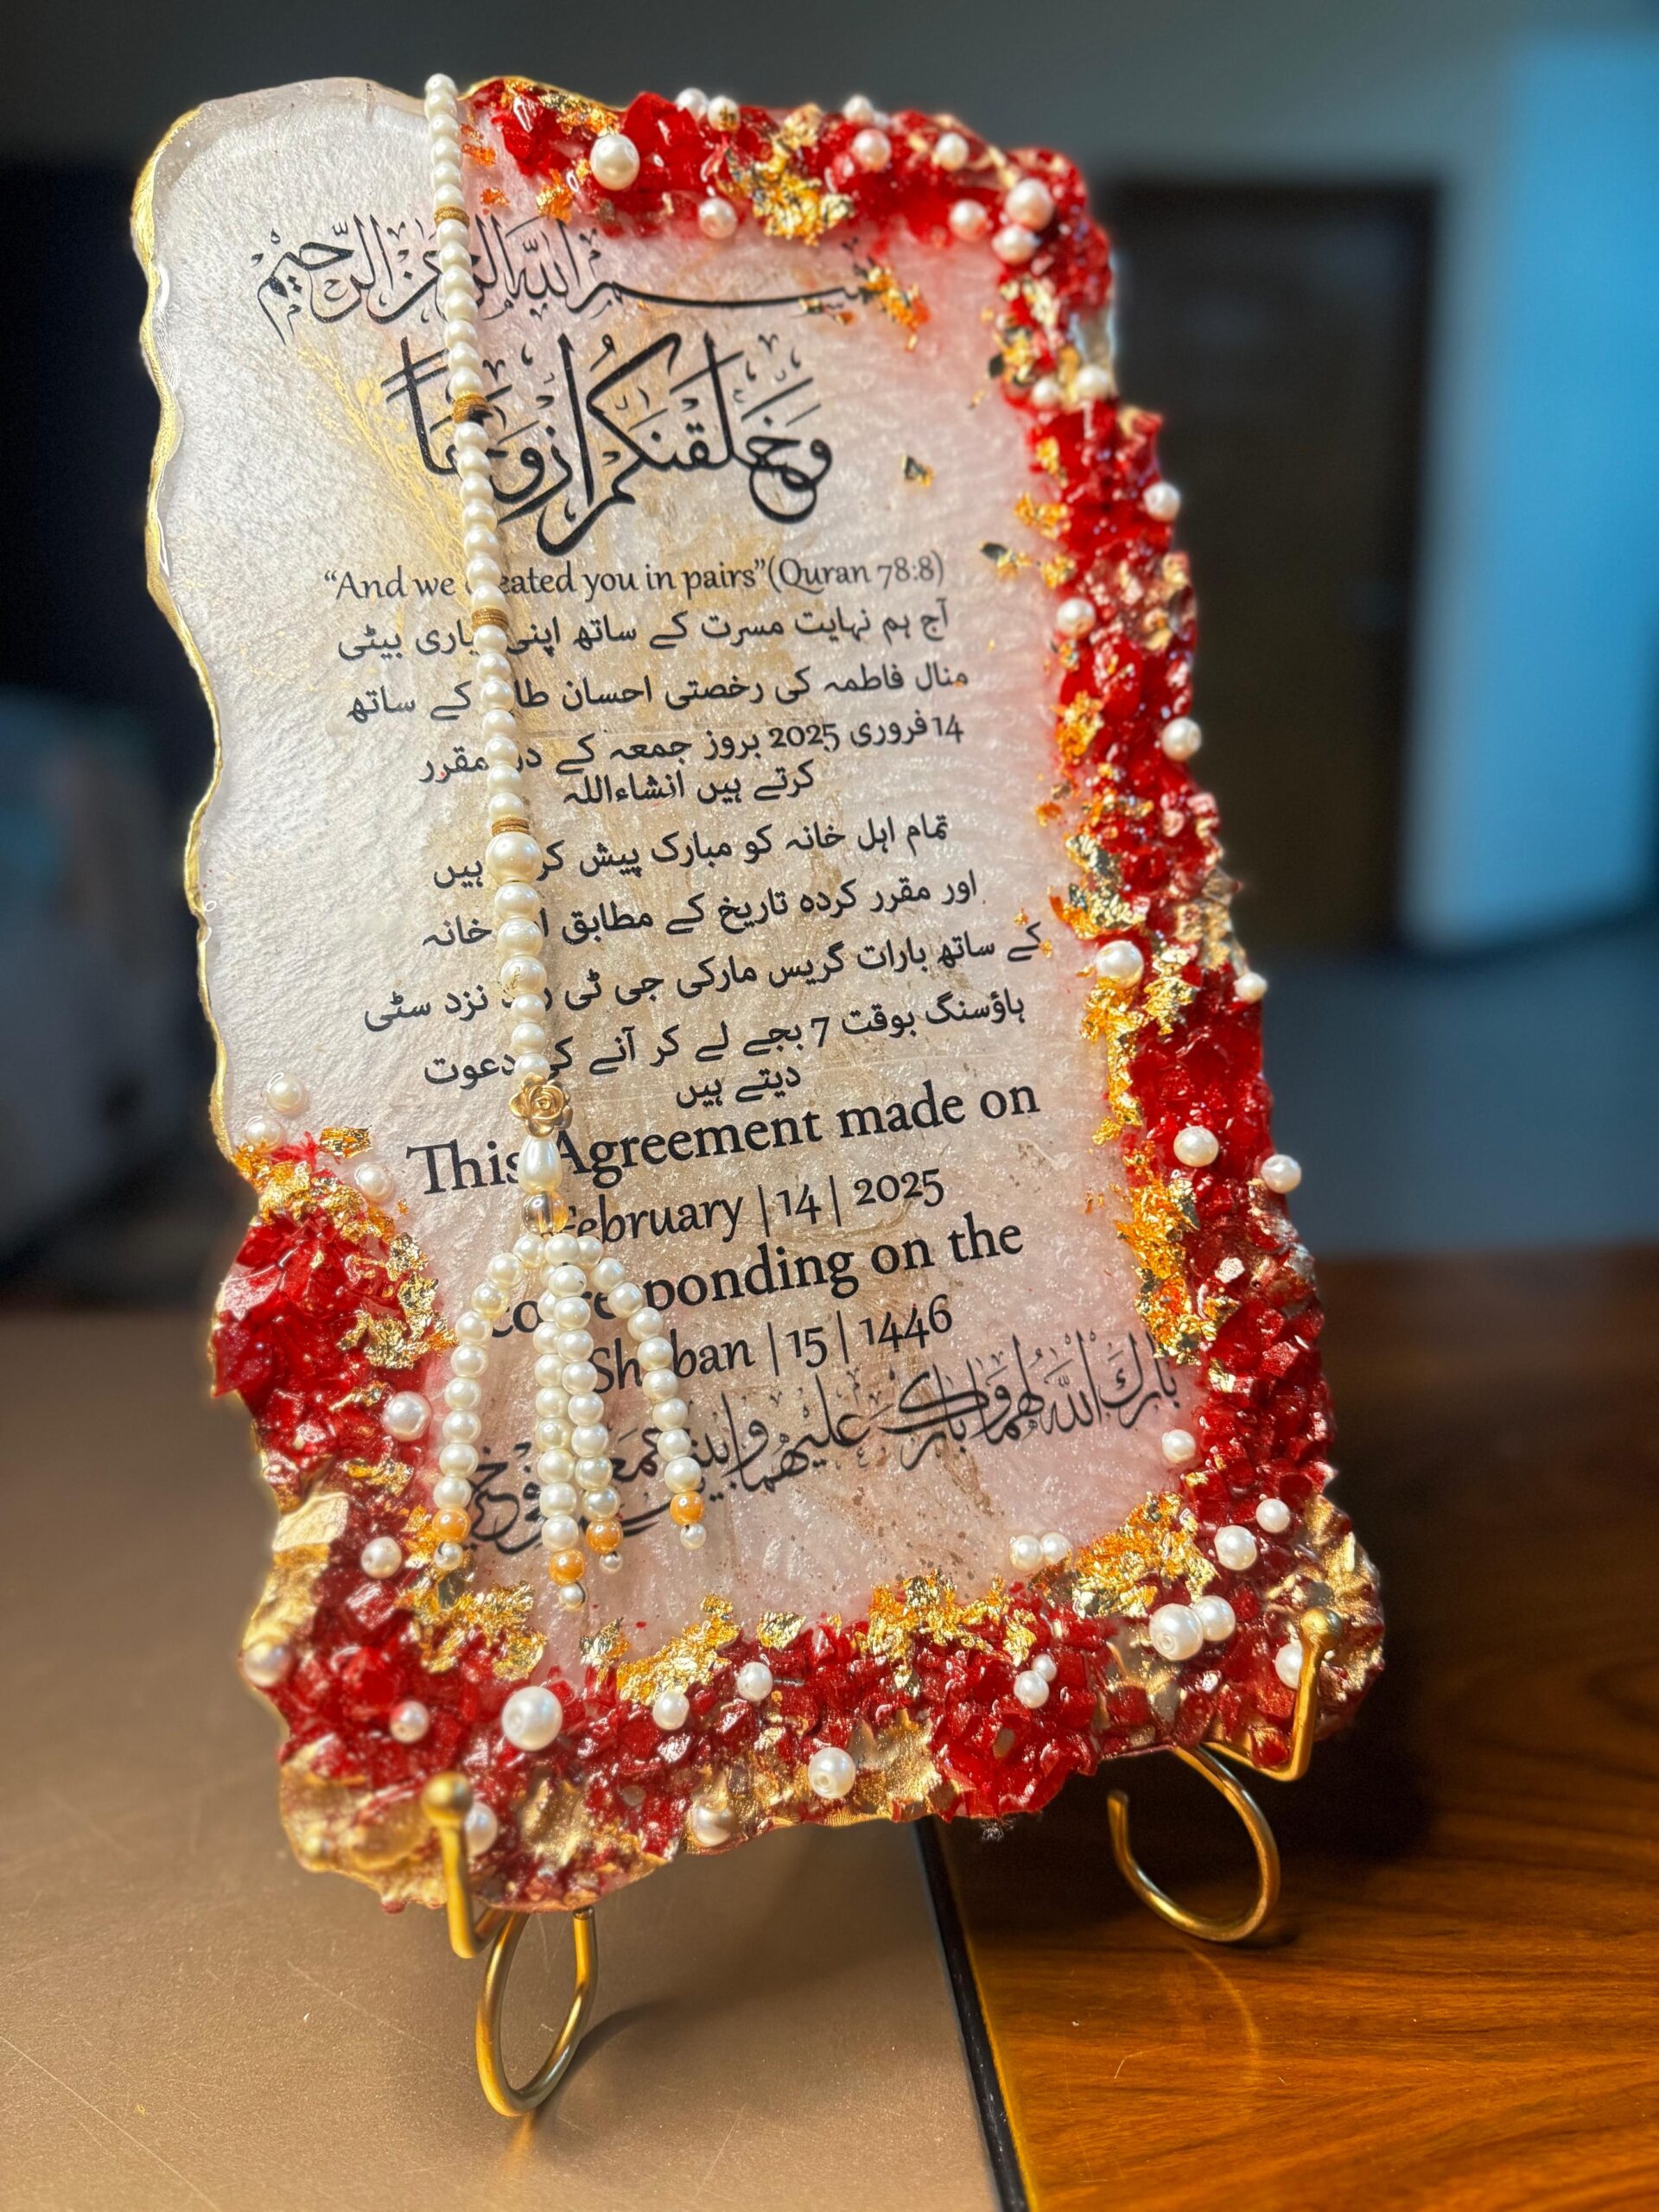 بسم الله الرحمن الرحيم
وَخَلَقْنَكُمْ أَزْوَجًا
“And we created you in pairs”(Quran 78:8)
آج ہم نہایت مسرت کے ساتھ اپنی پیاری بیٹی
منال فاطمہ کی رخصتی احسان کے ساتھ
14 فروری 2025 بروز جمعہ کے دن مقرر
کرتے ہیں انشاءاللہ
تمام اہل خانہ کو مبارک پیش کرتے ہیں
اور مقرر کردہ تاریخ کے مطابق اہل خانہ
کے ساتھ بارات گریس مارکی جی ٹی روڈ نزد سٹی
ہاؤسنگ بوقت 7 بجے لے کر آنے کی دعوت
دیتے ہیں
This Agreement made on
February | 14 | 2025
corresponding on the
Shaban | 15 | 1446
بارك الله لهما وبارك عليهما وجمع بينهما في خير